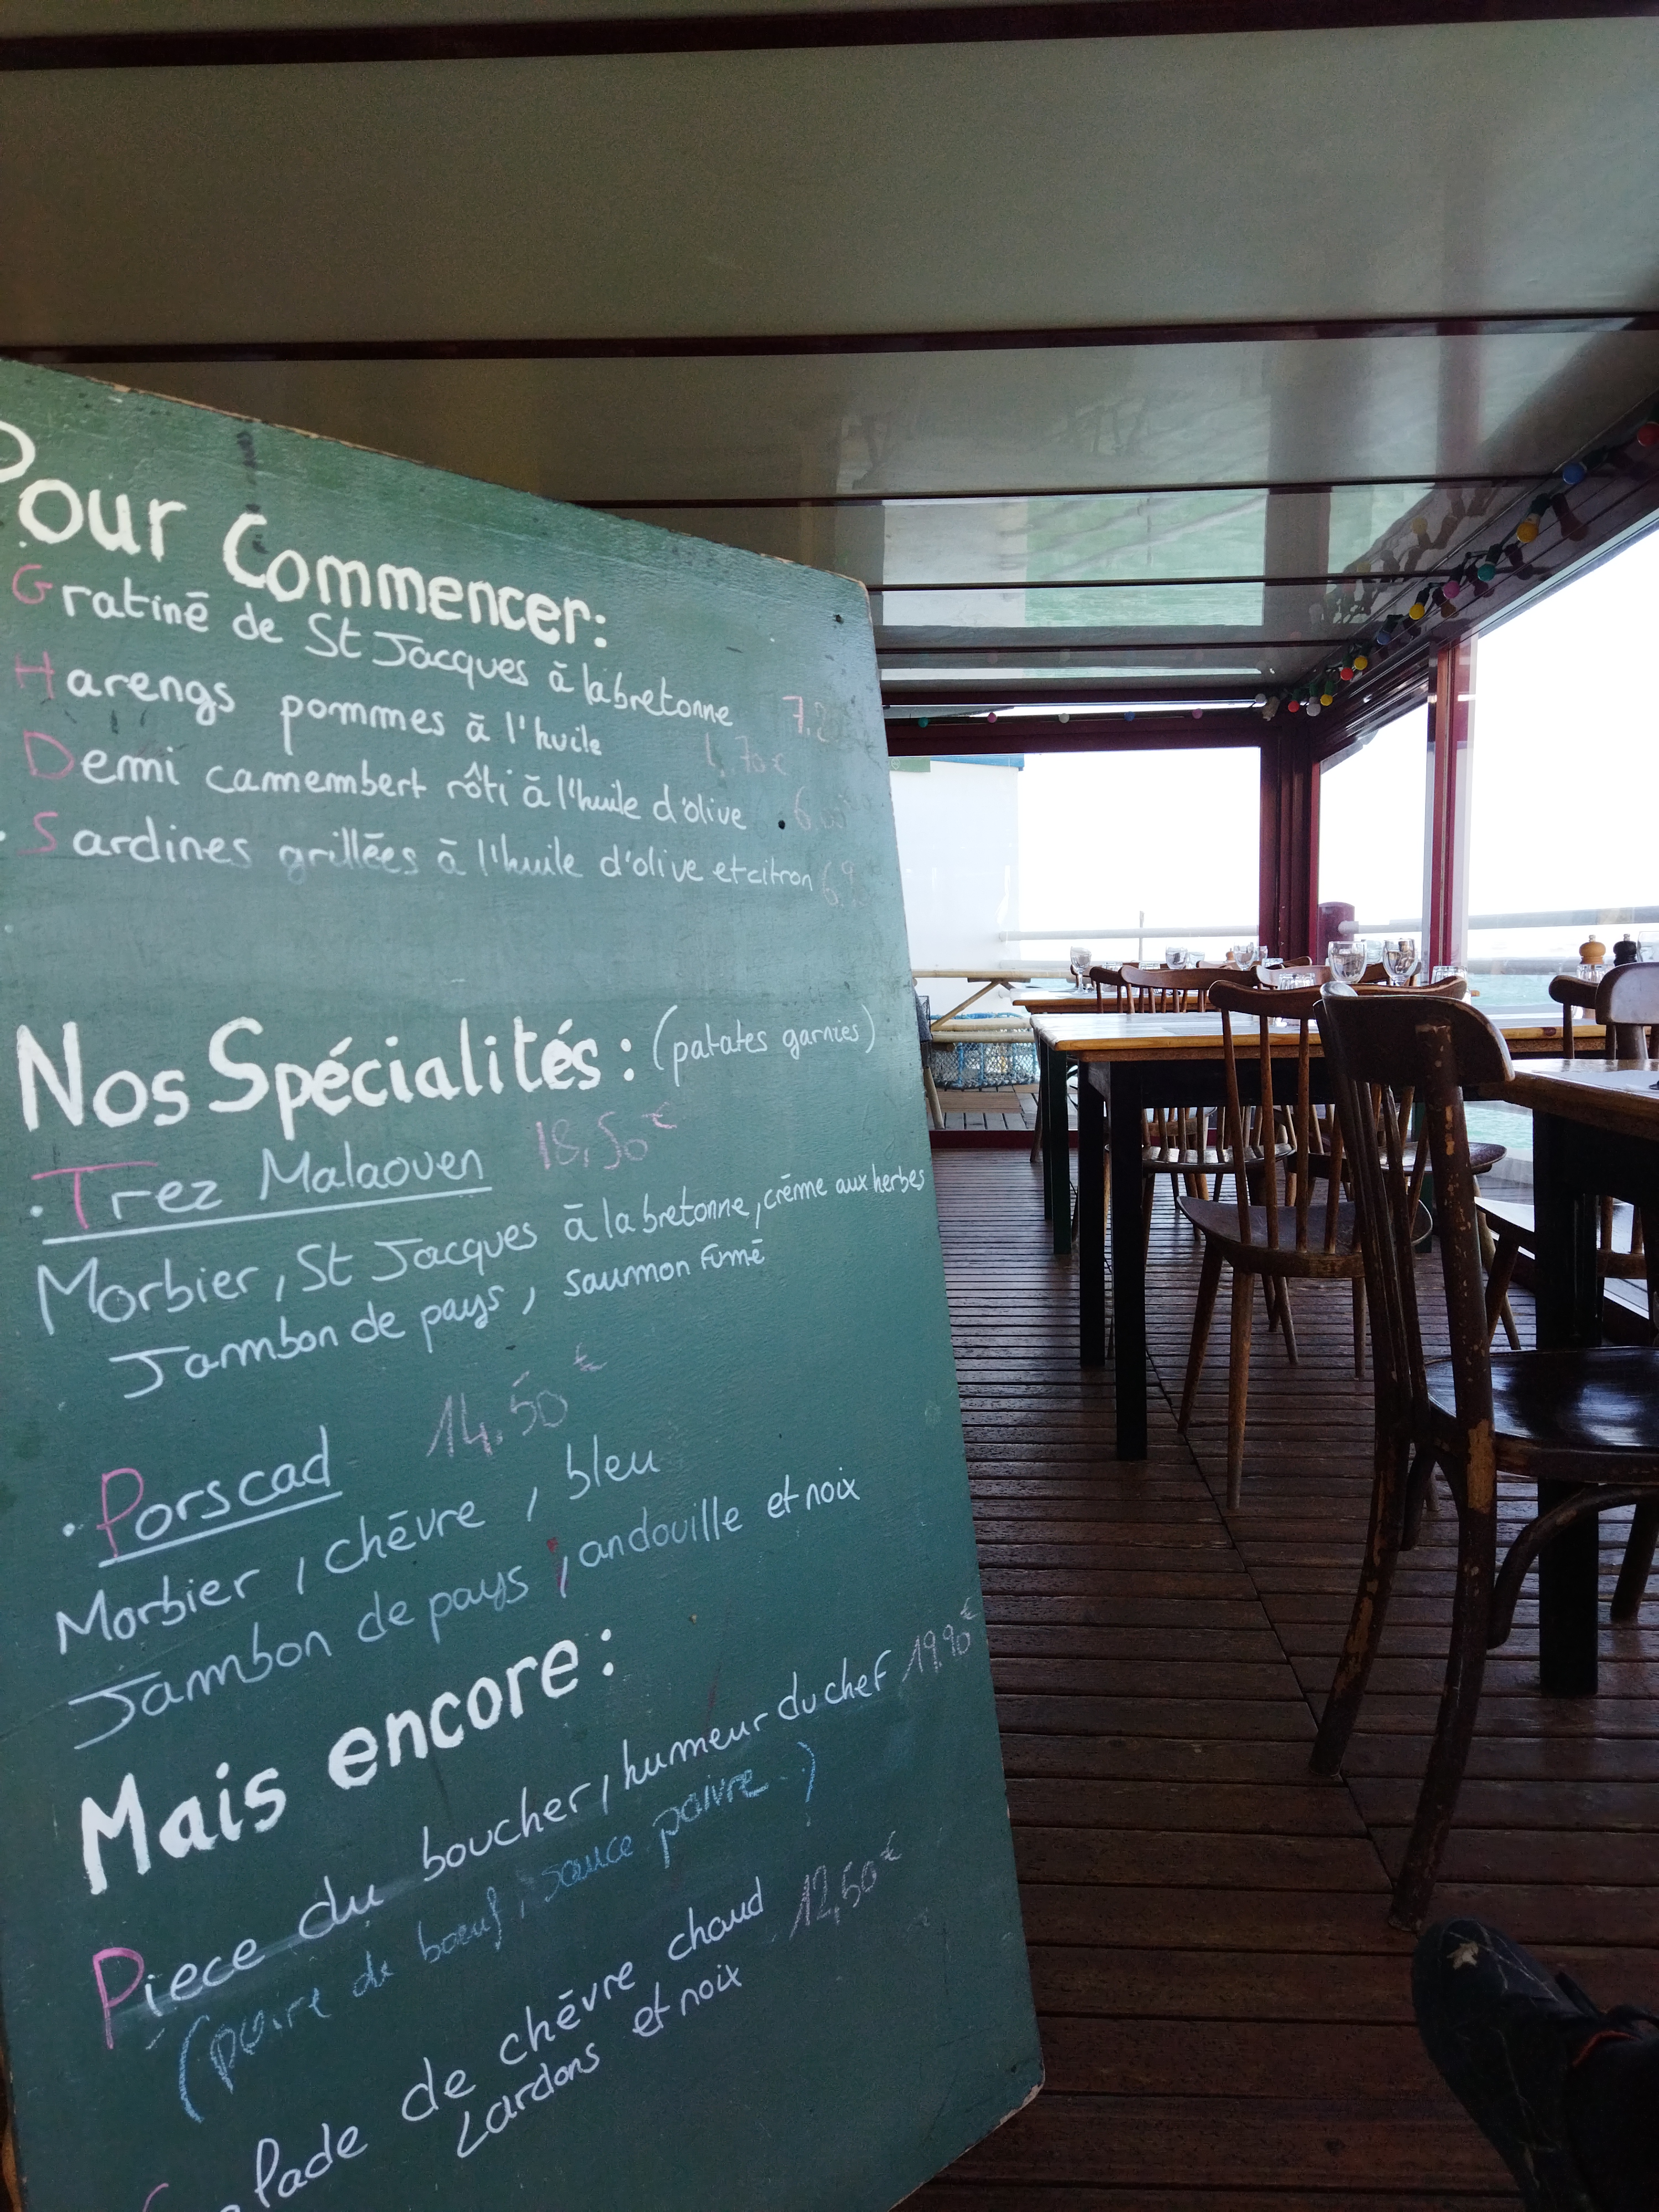 Pour Commencer:
Gratiné de St Jacques à la bretonne
Harengs pommes à l'huile
Demi camembert rôti à l'huile d'olive
Sardines grillées à l'huile d'olive et citron
Nos Spécialités : (patates garnies)
. Trez Malaouen 18,50€
Morbier, St Jacques à la bretonne, crème aux herbes
Jambon de pays, saumon Fumé
. Porscad 14,50€
Morbier, chèvre, bleu
Jambon de pays, andouille et noix
Mais encore :
Pièce du boucher, humeur du chef 19,90€
(poire de boeuf, sauce poivre.)
Salade de chèvre chaud 12,50€
Lardons et noix